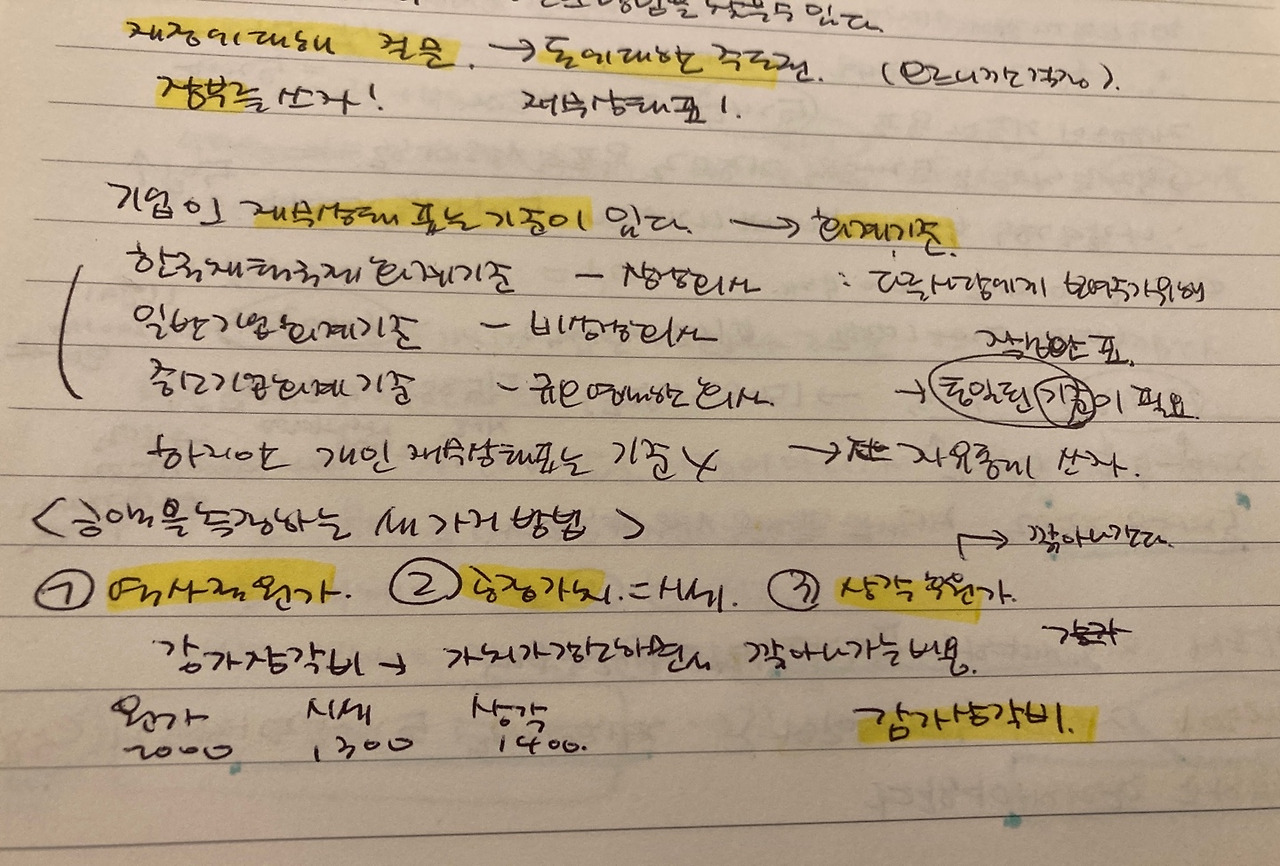 수 있다.
재정에대해 질문. → 돈에대한 주도권. (모르니까 걱정).
장부를 쓰자! 재무상태표!.
기업이 재무상태표는 기준이 있다. → 회계기준.
한국채택국제회계기준 - 상장회사 : 다른사람에게 보여주기위해
일반기업회계기준 - 비상장회사 작성한 표.
중소기업회계기준 - 규모영세한회사. → 통일된 기준이 필요.
하지만 개인재무상태표는 기준 X → 자유롭게 쓰자.
<금액을 측정하는 세가지 방법> → 깎아나간다.
① 역사적원가. ② 공정가치.=시세. ③ 상각후원가.
감가상각비 → 가치가감소하면서 깎아나가는비용.
원가 시세 상각 감가상각비.
2000 1300 1400.